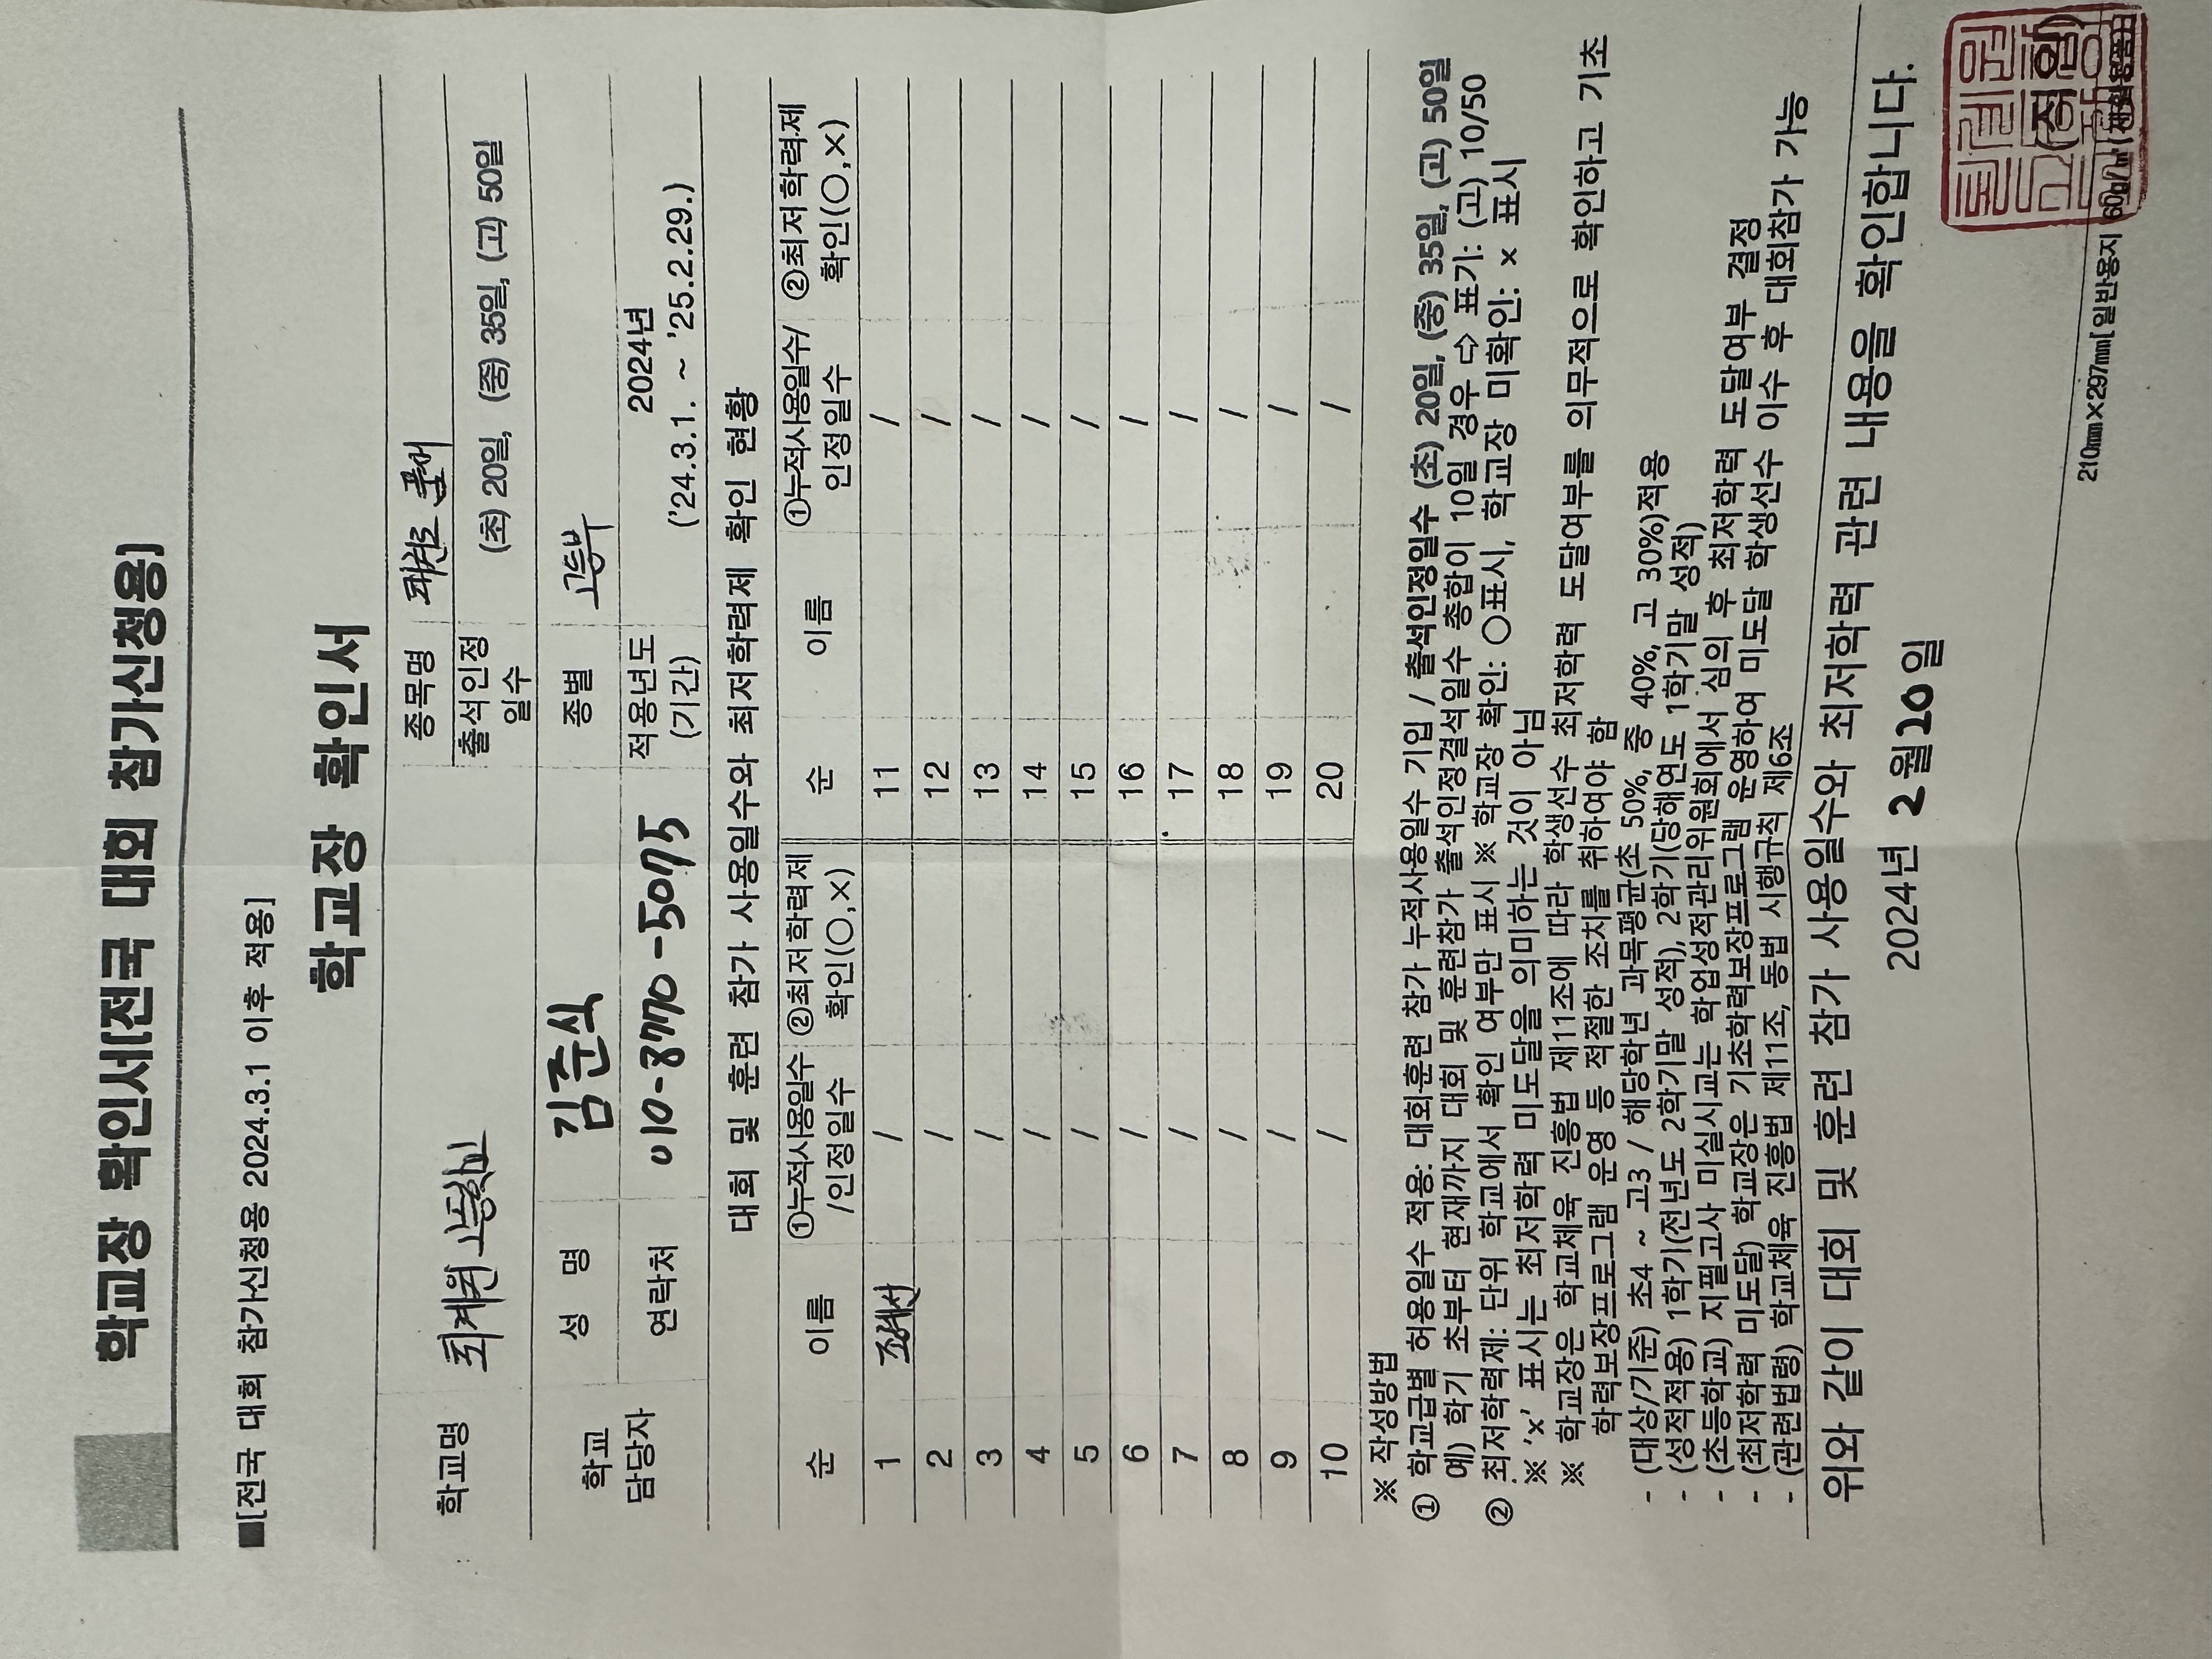 학교장 확인서[전국 대회 참가신청용]
■[전국 대회 참가신청용 2024.3.1 이후 적용]
학교장 확인서
학교명 퇴계원 고등학교 종목명 태권도 품새
출석인정 일수 (초) 20일, (중) 35일, (고) 50일
학교 담당자 성 명 김준식 종별 고등부
연락처 010-8770-5075 적용년도 (기간) 2024년 ('24.3.1. ~ '25.2.29.)
대회 및 훈련 참가 사용일수와 최저학력제 확인 현황
순 이름 ①누적사용일수 /인정일수 ②최저학력제 확인(○,×) 순 이름 ①누적사용일수/ 인정일수 ②최저학력제 확인(○,×)
1 / 11 /
2 / 12 /
3 / 13 /
4 / 14 /
5 / 15 /
6 / 16 /
7 / 17 /
8 / 18 /
9 / 19 /
10 / 20 /
※ 작성방법
① 학교급별 허용일수 적용: 대회·훈련 참가 누적사용일수 기입 / 출석인정일수 (초) 20일, (중) 35일, (고) 50일
예) 학기 초부터 현재까지 대회 및 훈련참가 출석인정결석일수 총합이 10일 경우 ⇨ 표기: (고) 10/50
② 최저학력제: 단위 학교에서 확인 여부만 표시 ※ 학교장 확인: ○표시, 학교장 미확인: × 표시
※ 'x' 표시는 최저학력 미도달을 의미하는 것이 아님
※ 학교장은 학교체육 진흥법 제11조에 따라 학생선수 최저학력 도달여부를 의무적으로 확인하고 기초
학력보장프로그램 운영 등 적절한 조치를 취하여야 함
- (대상/기준) 초4 ~ 고3 / 해당학년 과목평균(초 50%, 중 40%, 고 30%)적용
- (성적적용) 1학기(전년도 2학기말 성적), 2학기(당해연도 1학기말 성적)
- (초등학교) 지필고사 미실시교는 학업성적관리위원회에서 심의 후 최저학력 도달여부 결정
- (최저학력 미도달) 학교장은 기초학력보장프로그램 운영하여 미도달 학생선수 이수 후 대회참가 가능
- (관련법령) 학교체육 진흥법 제11조, 동법 시행규칙 제6조
위와 같이 대회 및 훈련 참가 사용일수와 최저학력 관련 내용을 확인합니다.
2024년 2월 20일
(직인)
210㎜×297㎜[일반용지 60g/㎡(재활용품)]